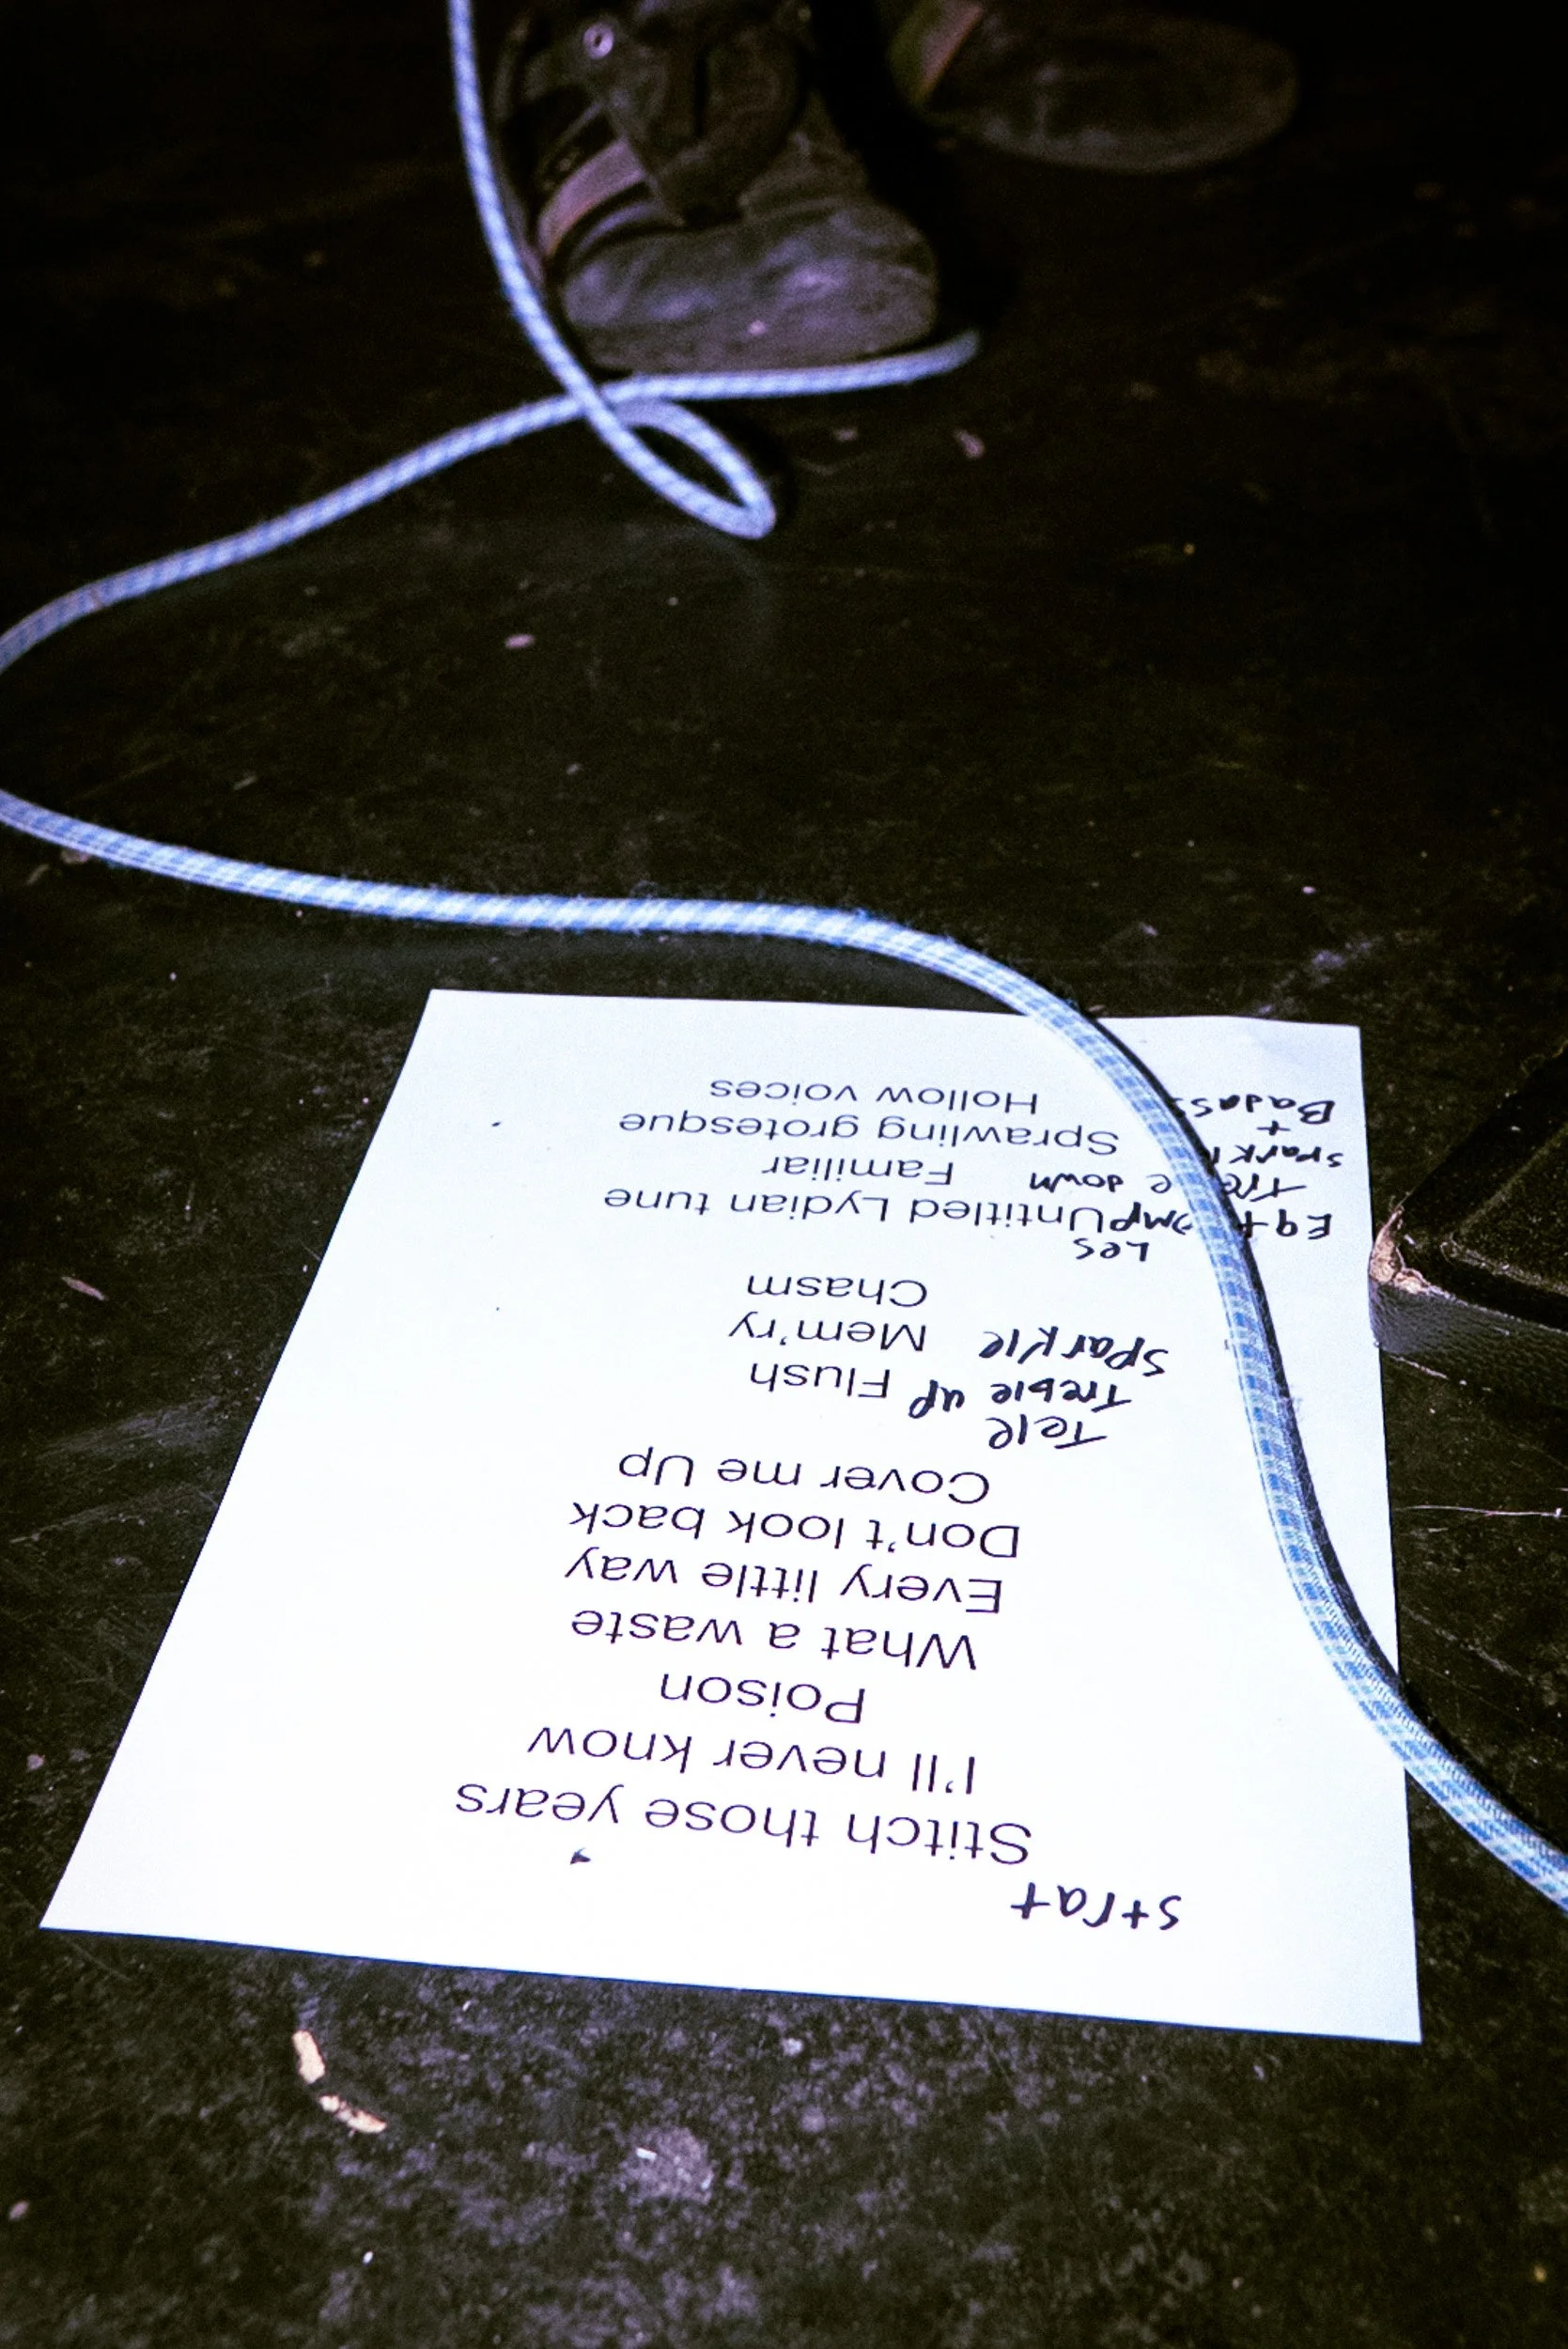 strat
Stitch those years
I'll never know
Poison
What a waste
Every little way
Don't look back
Cover me Up
Tele
Treble up Flush
Sparkle Mem'ry
Chasm
Les
EQ + Untitled Lydian tune
down Familiar
+ Sprawling grotesque
Hollow voices